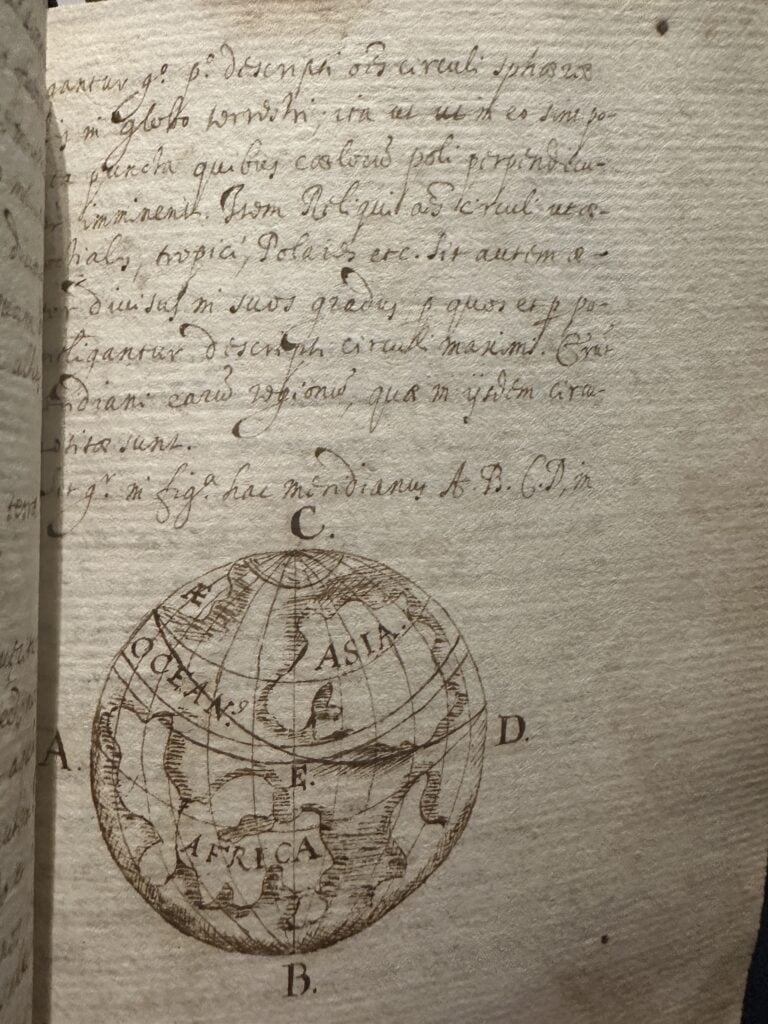 gantur gº. pº. descripti oēs circuli sphæræ
in globo terrestri; ita ut ut in eo sint po-
puncta quibus cœlorū poli perpendicu-
imminent. Item Reliqui oēs circuli ut æ-
tialis, tropici, Polares etc. Sit autem æ-
divisus in suos gradus, p quos et p po-
ntelligantur descripti circuli maximi. Erūt
ridiani earū regionū, quæ in ijsdem circu-
positæ sunt.
Sit gr. in figª. hac meridianus A. B. C. D, in
C.
ASIA.
OCEAN.9
A.
D.
E.
AFRICA
B.